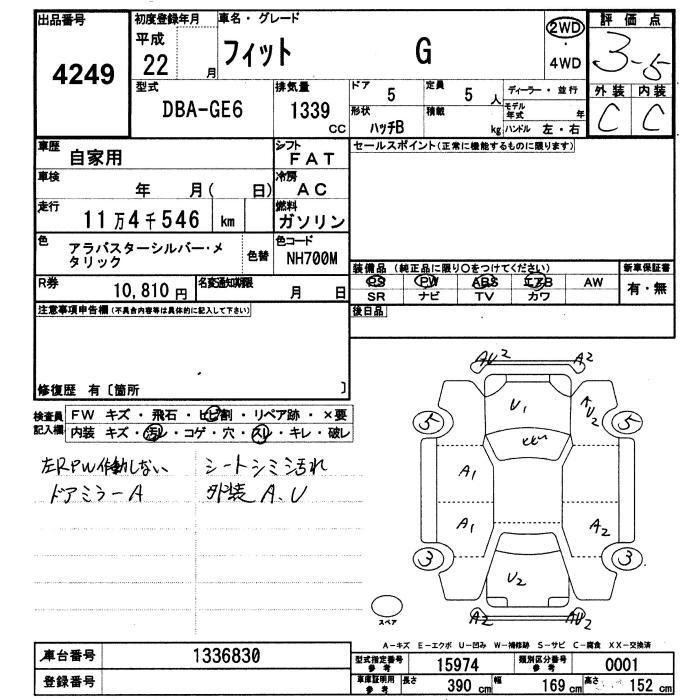 出品番号
4249
初度登録年月
平成
22 月
車名・グレード
フィット G
2WD
・
4WD
評価点
3-5
外装 内装
C C
型式
DBA-GE6
排気量
1339
CC
ドア 5
定員 5 人
ディーラー・並行
モデル年式 年
形状
ハッチB
積載
kg
ハンドル 左・右
車歴
自家用
シフト
FAT
セールスポイント(正常に機能するものに限ります)
車検
年 月( 日)
冷房
AC
走行
11万4千546 km
燃料
ガソリン
色
アラバスターシルバー・メ
タリック
色替
色コード
NH700M
R券
10,810円
名変通知期限
月 日
装備品(純正品に限り○をつけてください)
PS PW ABS エアB AW
SR ナビ TV カワ
新車保証書
有・無
注意事項申告欄(不具合内容等は具体的に記入して下さい)
後日品
修復歴 有〔箇所 〕
検査員
記入欄
FW キズ・飛石・ヒビ割・リペア跡・×要
内装 キズ・汚レ・コゲ・穴・スレ・キレ・破レ
左RPW作動しない シートシミ汚れ
ドアミラーA 外装A、U
AU2 A2
5 U1 U2 5
A1
A1 A2
3 U2 3
A2 AU2
スペア
A-キズ E-エクボ U-凹み W-補修跡 S-サビ C-腐食 XX-交換済
車台番号
1336830
型式指定番号
参考
15974
類別区分番号
参考
0001
登録番号
車庫証明用
参考
長さ 390 cm
幅 169 cm
高さ 152 cm